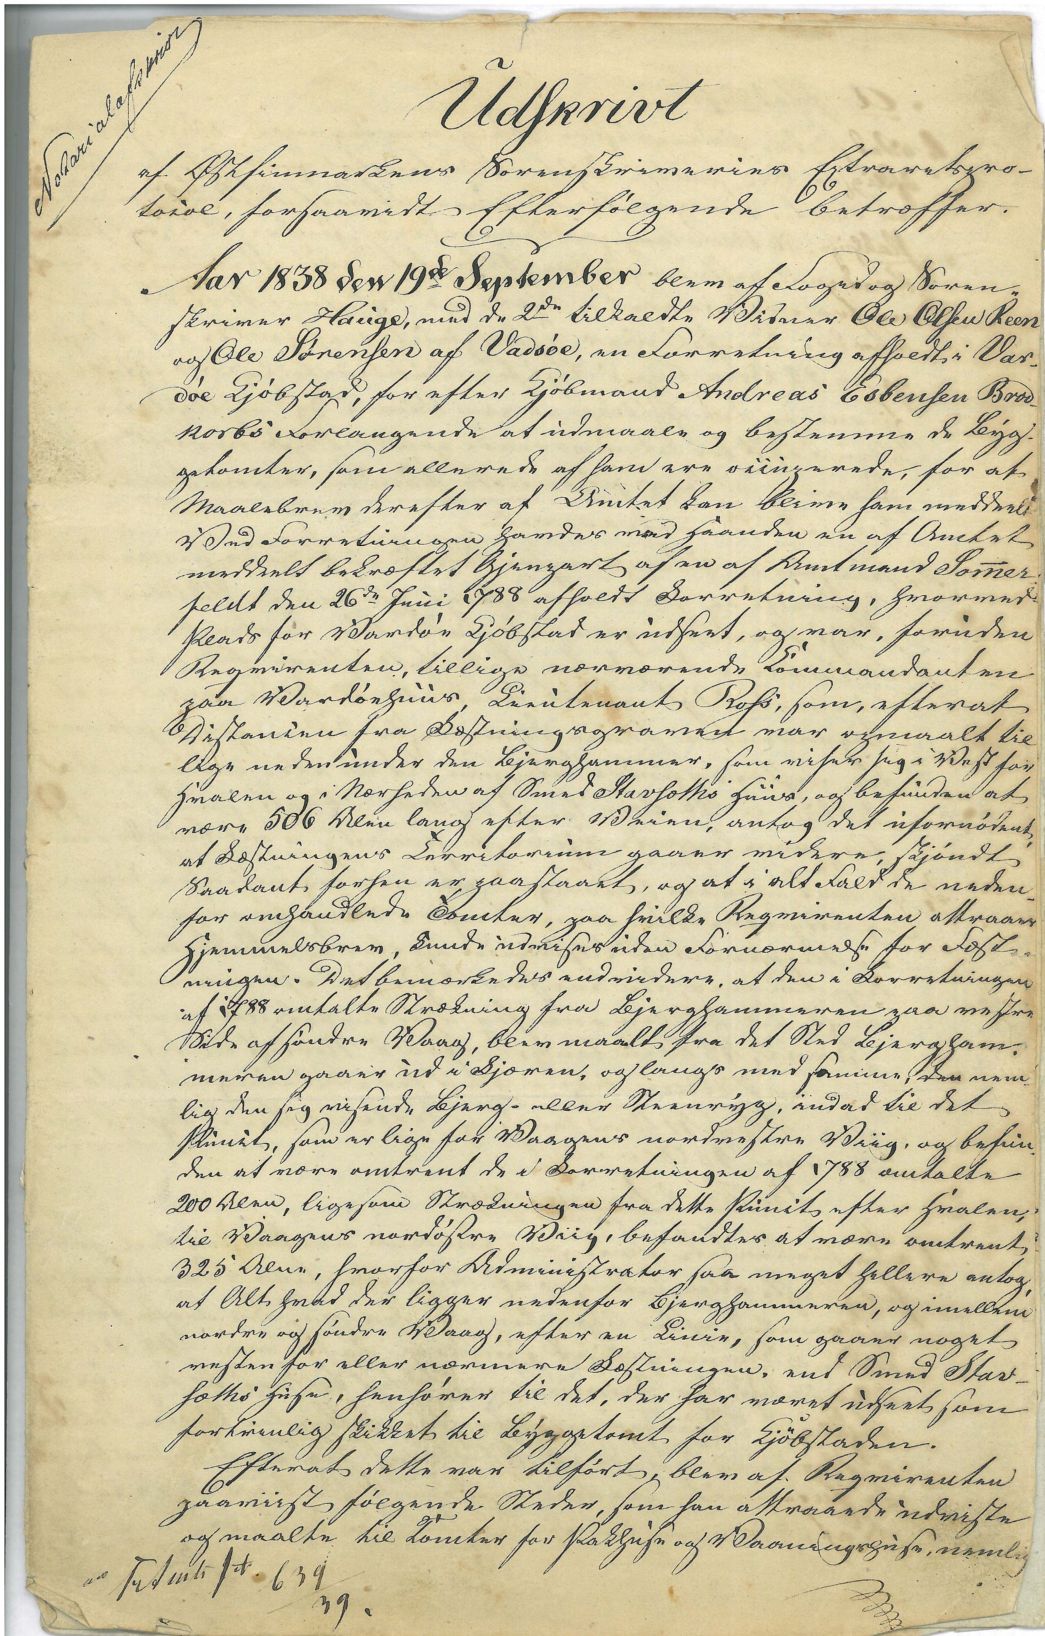 Notarialafskrivt
Udskrivt
af Østfinmarkens Sorenskriveries Extraretspro-
tocol, forsaavidt Efterfølgende betræffer.
Aar 1838 den 19de September blev af Foged og Soren-
skriver Hauge, med de 2de tilkaldte Vidner Ole Olsen Keen
og Ole Sørensen af Vadsøe, en Forretning afholdt i Var-
døe Kjøbstad, for efter Kjøbmand Andreas Esbensen Brod-
korbs Forlangende at udmaale og bestemme de Byg-
getomter, som allerede af ham ere occuperede, for at
Maalebrev derefter af Amtet kan blive ham meddeelt
Ved Forretningen havdes ved Haanden en af Amtet
meddeelt bekræftet Gjenpart af en af Amtmand Sommer-
feldt den 26de Juni 1788 afholdt Forretning, hvorved
Plads for Vardøe Kjøbstad er udseet, og var, foruden
Reqvirenten, tillige nærværende Kommandanten
paa Vardøehuus, Lieutenant Ross, som, efterat
Distancen fra Fæstningsgraven var opmaalt til
lige nedenunder den Bjerghammer, som viser sig i Vest for
Hvalen og i Nærheden af Smed Stavsøths Huus, og befunden at
være 506 Alen lang efter Veien, antog det ufornødent,
at Fæstningens Territorium gaaer videre, skjøndt
Saadant forhen er paastaaet, og at i alt Fald de neden-
for omhandlede Tomter, paa hvilke Reqvirenten attraaer
Hjemmelsbrev, kunde udvises uden Fornærmelse for Fæst-
ningen. Det bemærkedes endvidere, at den i Forretningen
af 1788 omtalte Strækning fra Bjerghammeren paa vestre
Side af søndre Vaag, blev maalt fra det Sted Bjergham-
meren gaaer ud i Fjæren, og langs med samme, den nem-
lig den sig visende Bjerg- eller Steenryg, indad til det
Punct, som er lige for Vaagens nordvestre Viig, og befun-
den at være omtrent de i Forretningen af 1788 omtalte
200 Alen, ligesom Strækningen fra dette Punct efter Hvalen,
til Vaagens nordøstre Viig, befandtes at være omtrent
325 Alne, hvorfor Administrator saa meget hellere antog,
at Alt hvad der ligger nedenfor Bjerghammeren, og imellem
nordre og søndre Vaag, efter en Linie, som gaaer noget
vesten for eller nærmere Fæstningen, end Smed Stav-
sæths Huse, henhører til det, der har været udseet som
fortrinlig skikket til Byggetomt for Kjøbstaden.
Efterat dette var tilført, blev af Reqvirenten
paaviist følgende Steder, som han attraaede udviste
og maalte til Tomter for Pakhuse og Vaaningshuse, nemlig
639
39.